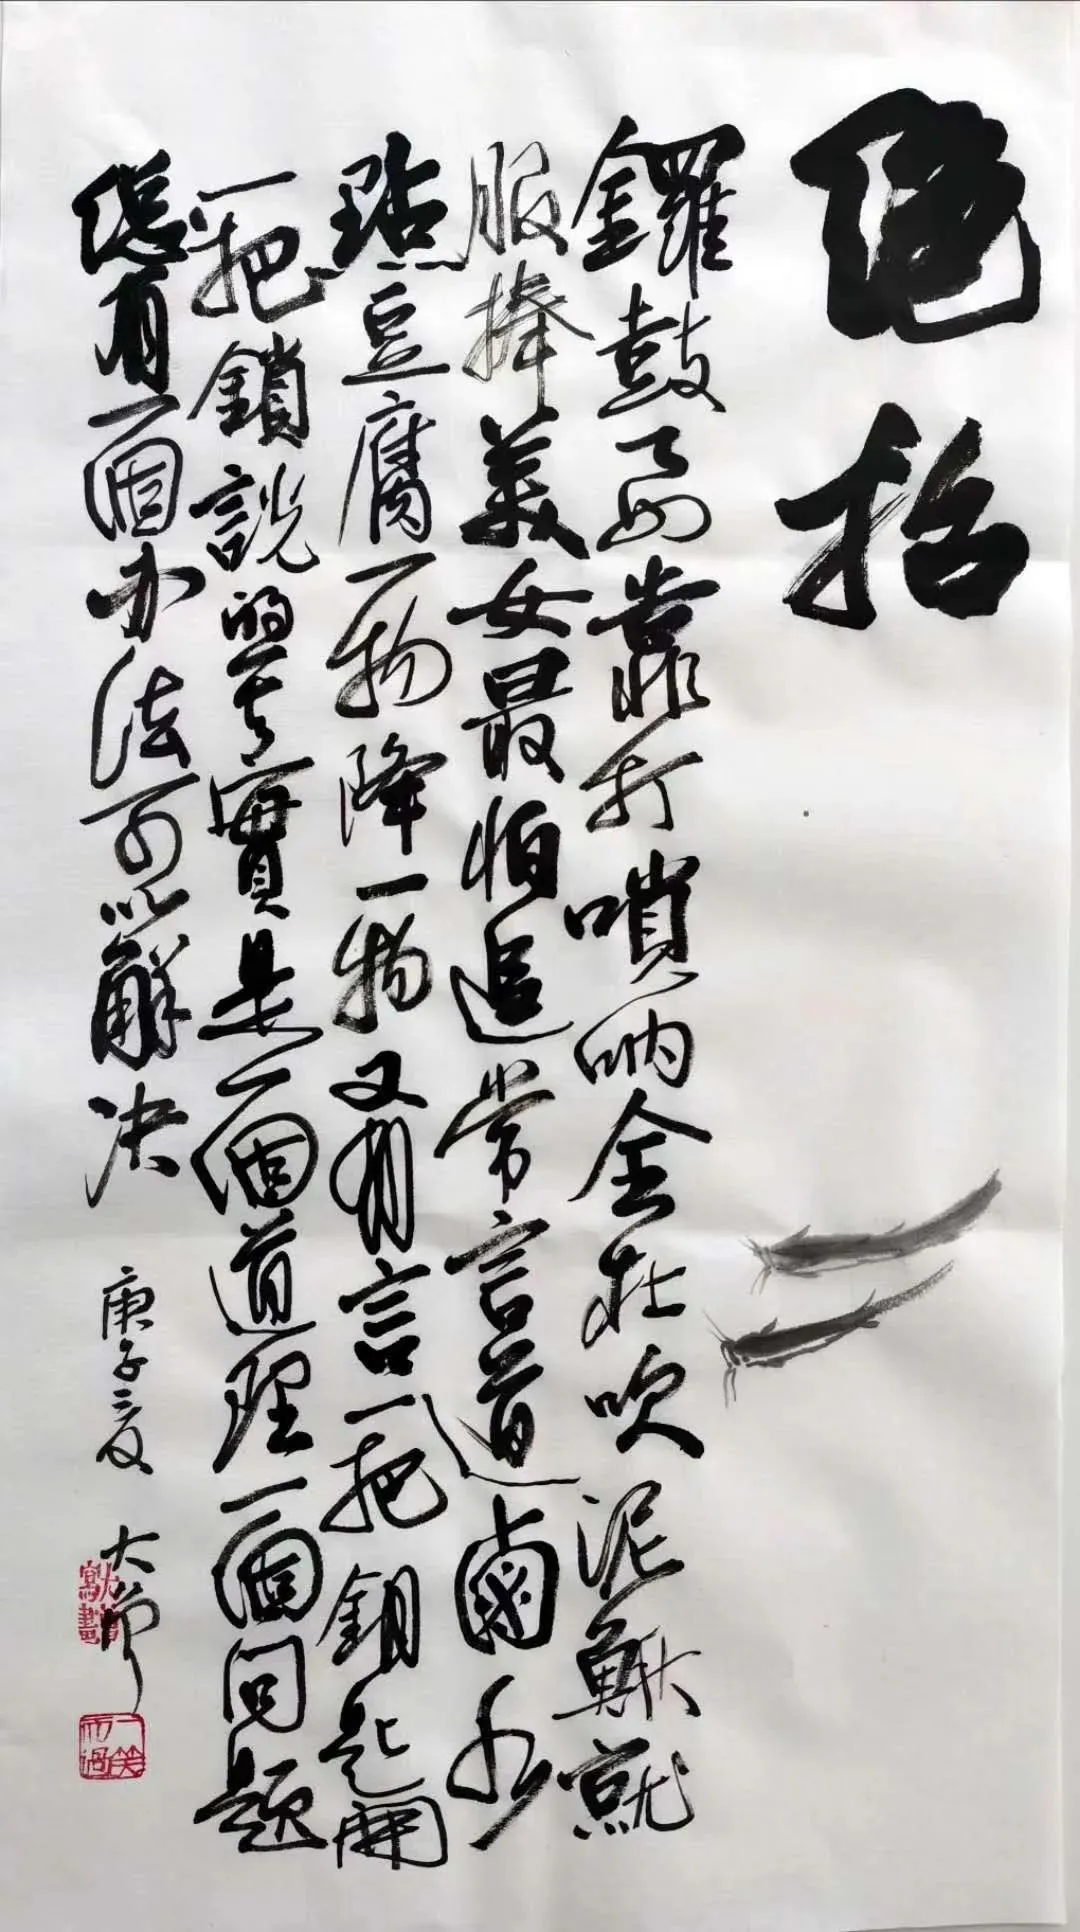 绝招
鑼鼓要靠打嗩吶全在吹泥鰍就
服捧美女最怕追常言道鹵水
點豆腐一物降一物又有言一把鈅匙開
一把鎖說的其實是一個道理一個问題
總有一個办法可以解决
庚子夏 大
一笑而過